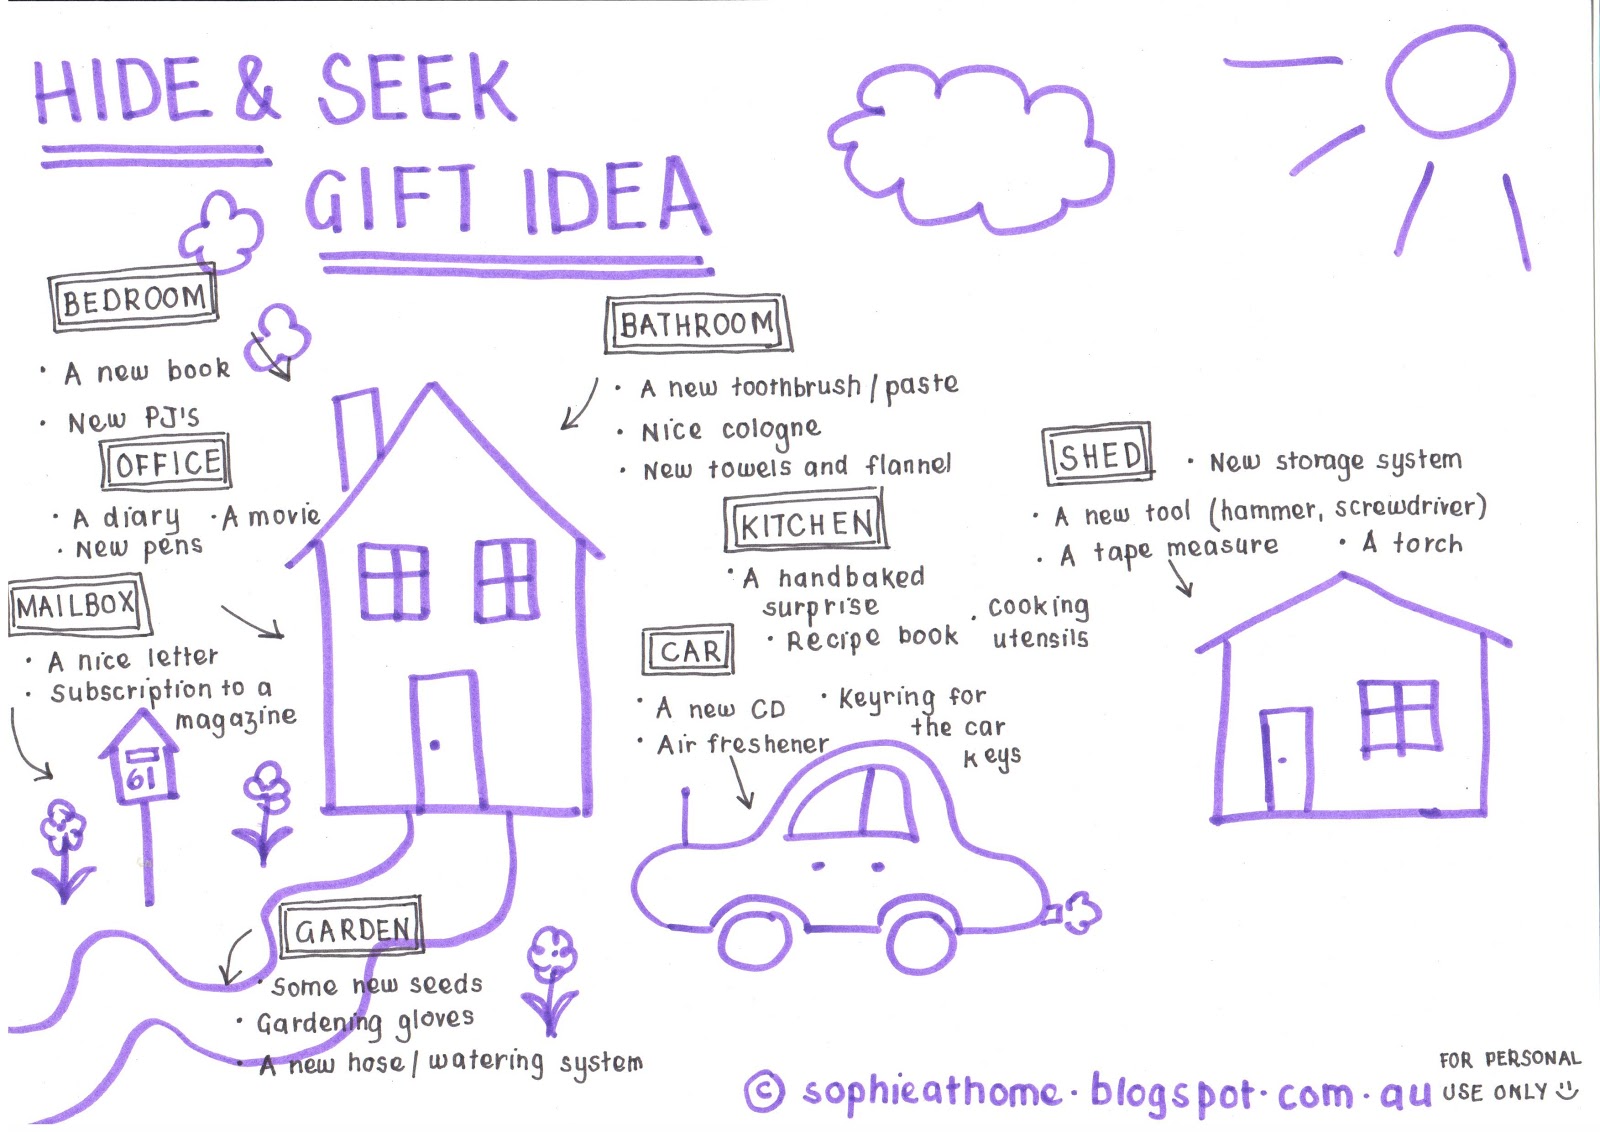 HIDE & SEEK
GIFT IDEA
BEDROOM
· A new book
· New PJ's
OFFICE
· A diary · A movie
· New pens
MAILBOX
· A nice letter
· Subscription to a
magazine
61
BATHROOM
· A new toothbrush / paste
· Nice cologne
· New towels and flannel
KITCHEN
· A handbaked
surprise
· Recipe book
· cooking
utensils
CAR
· A new CD
· Air freshener
· Keyring for
the car
keys
SHED
· New storage system
· A new tool (hammer, screwdriver)
· A tape measure · A torch
GARDEN
· Some new seeds
· Gardening gloves
· A new hose / watering system
© sophieathome.blogspot.com.au
FOR PERSONAL
USE ONLY